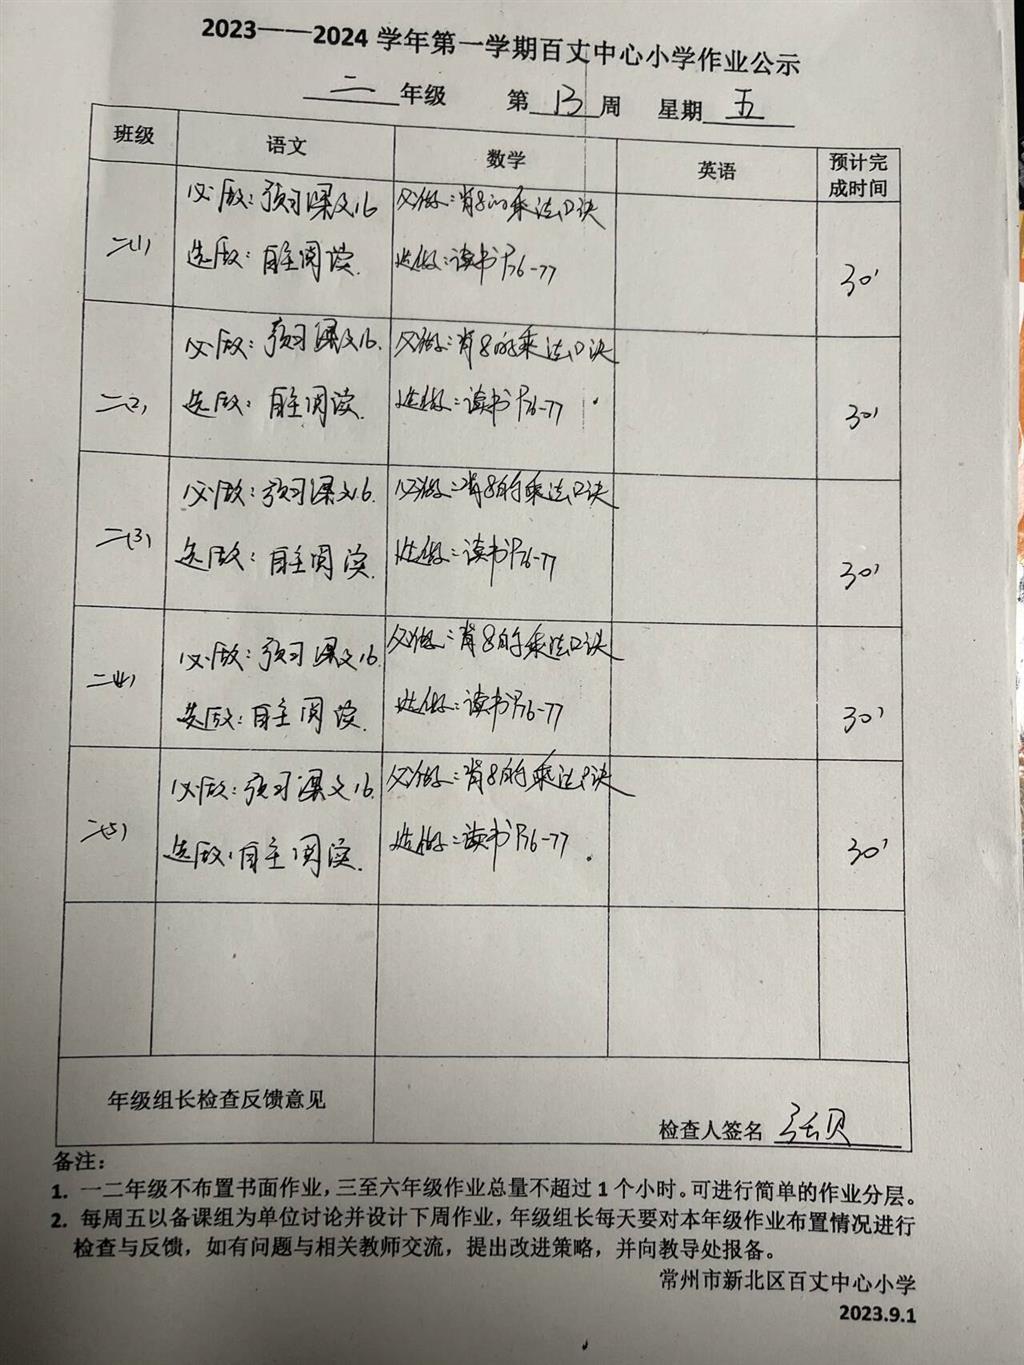 2023——2024 学年第一学期百丈中心小学作业公示
二 年级 第 13 周 星期 五
班级 语文 数学 英语 预计完成时间
二(1) 必做：预习课文16 必做：背8的乘法口诀 30'
选做：自主阅读. 选做：读书P76-77
二(2) 必做：预习课文16. 必做：背8的乘法口诀 30'
选做：自主阅读. 选做：读书P76-77
二(3) 必做：预习课文16. 必做：背8的乘法口诀 30'
选做：自主阅读. 选做：读书P76-77
二(4) 必做：预习课文16. 必做：背8的乘法口诀 30'
选做：自主阅读. 选做：读书P76-77
二(5) 必做：预习课文16. 必做：背8的乘法口诀 30'
选做：自主阅读. 选做：读书P76-77
年级组长检查反馈意见
检查人签名
备注：
1. 一二年级不布置书面作业，三至六年级作业总量不超过 1 个小时。可进行简单的作业分层。
2. 每周五以备课组为单位讨论并设计下周作业，年级组长每天要对本年级作业布置情况进行
检查与反馈，如有问题与相关教师交流，提出改进策略，并向教导处报备。
常州市新北区百丈中心小学
2023.9.1